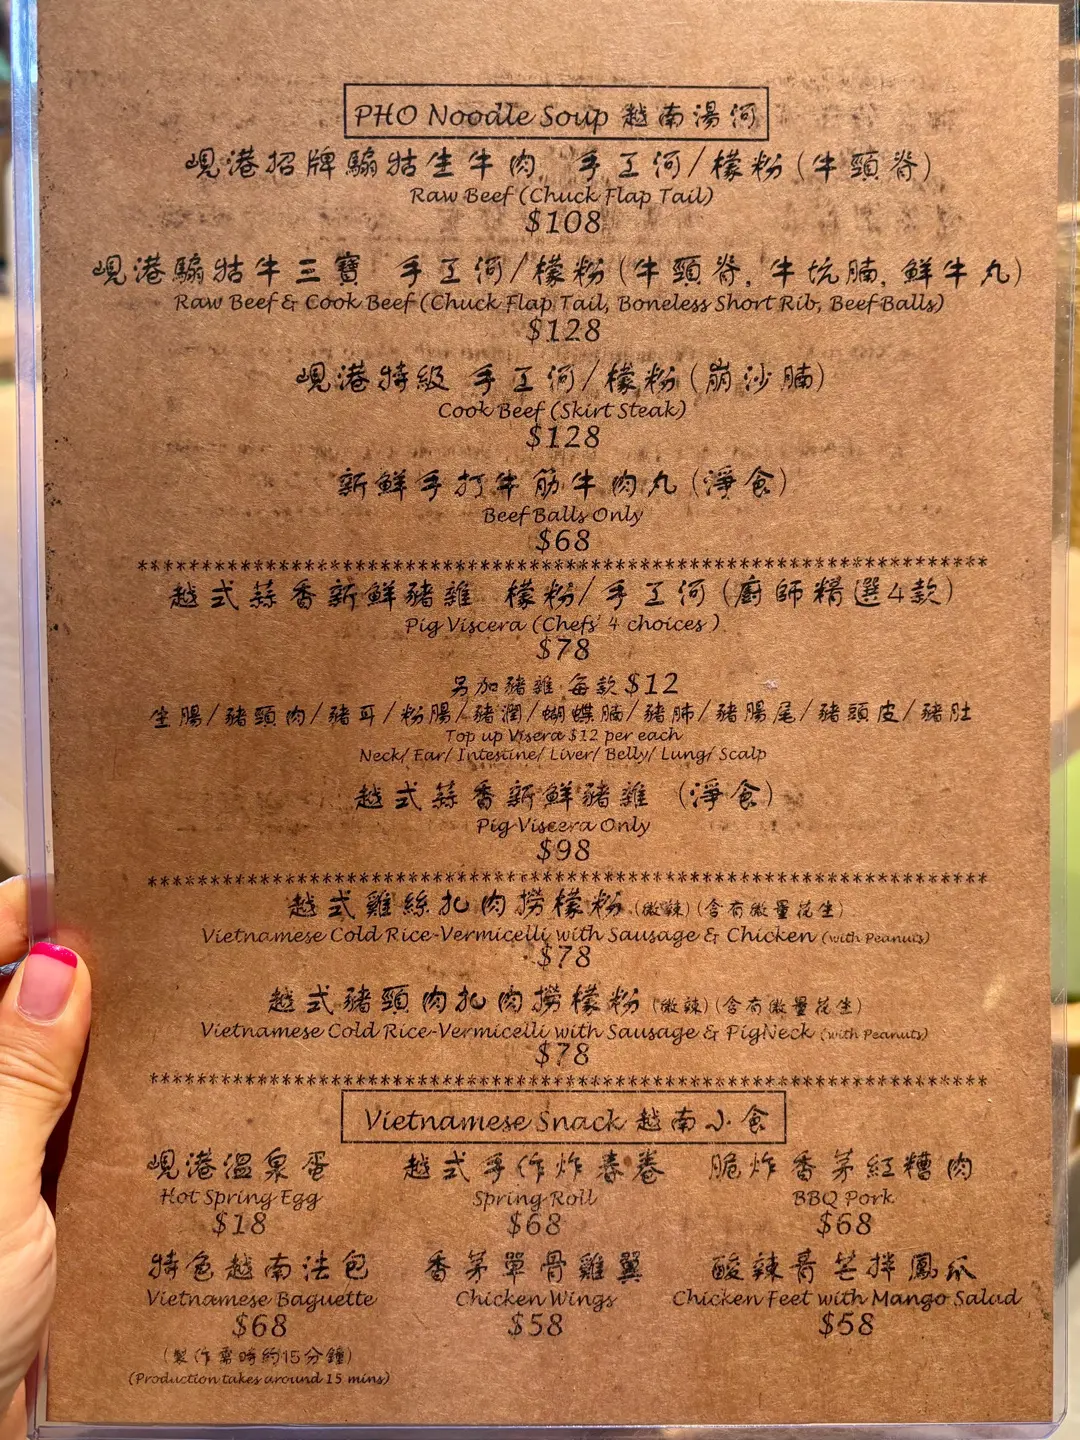 PHO Noodle Soup 越南湯河
峴港招牌騸牯生牛肉 手工河/檬粉(牛頸脊)
Raw Beef (Chuck Flap Tail)
$108
峴港騸牯牛三寶 手工河/檬粉(牛頸脊, 牛坑腩, 鮮牛丸)
Raw Beef & Cook Beef (Chuck Flap Tail, Boneless Short Rib, Beef Balls)
$128
峴港特級 手工河/檬粉(崩沙腩)
Cook Beef (Skirt Steak)
$128
新鮮手打牛筋牛肉丸(淨食)
Beef Balls Only
$68
**********************************************************************
越式蒜香新鮮豬雜 檬粉/手工河(廚師精選4款)
Pig Viscera (Chefs' 4 choices )
$78
另加豬雜 每款$12
生腸/豬頸肉/豬耳/粉腸/豬潤/蝴蝶腩/豬肺/豬腸尾/豬頭皮/豬肚
Top up Visera $12 per each
Neck/ Ear/ Intestine/ Liver/ Belly/ Lung/ Scalp
越式蒜香新鮮豬雜 (淨食)
Pig Viscera Only
$98
**********************************************************************
越式雞絲扎肉撈檬粉 (微辣)(含有微量花生)
Vietnamese Cold Rice-Vermicelli with Sausage & Chicken (with Peanuts)
$78
越式豬頸肉扎肉撈檬粉 (微辣)(含有微量花生)
Vietnamese Cold Rice-Vermicelli with Sausage & PigNeck (with Peanuts)
$78
**********************************************************************
Vietnamese Snack 越南小食
峴港溫泉蛋 越式手作炸春卷 脆炸香茅紅糟肉
Hot Spring Egg Spring Roll BBQ Pork
$18 $68 $68
特色越南法包 香茅單骨雞翼 酸辣青芒拌鳳爪
Vietnamese Baguette Chicken Wings Chicken Feet with Mango Salad
$68 $58 $58
(製作需時約15分鐘)
(Production takes around 15 mins)